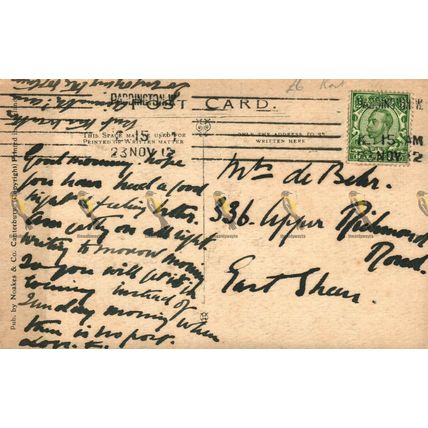 PADDINGTON. W.
6. 15 AM
23 NOV 12
PADDINGTON. W.
6. 15 AM
NOV 12
POST CARD.
THIS SPACE MAY BE USED FOR
PRINTED OR WRITTEN MATTER
ONLY THE ADDRESS TO BE
WRITTEN HERE.
Pub. by Noakes & Co. Canterbury. Copyright. Printed in
Good morning hope
you have had a good
night & feeling better.
Am on all right
writing to morrow morning
so you will get it in
evening instead of
Sunday morning when
there is no post.
Love to
Mrs de Behr.
336. Upper Richmond
Road.
East Sheen.